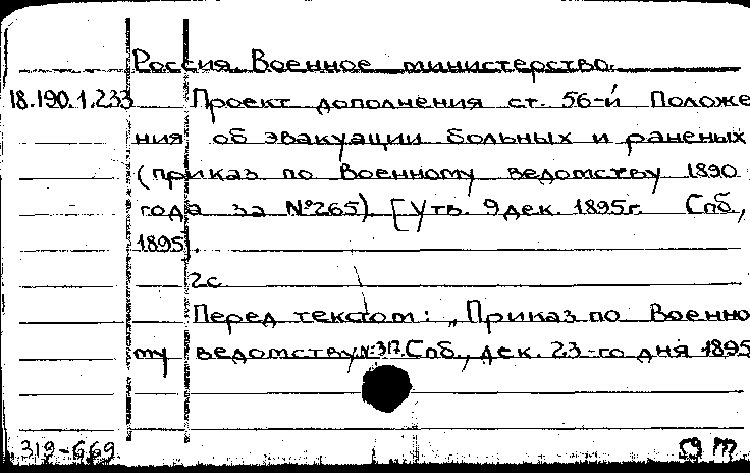 Россия. Военное министерство.
18.190.1.233 Проект дополнения ст. 56-й Положе
ния об эвакуации больных и раненых
(приказ по Военному ведомству 1890
года за №265). [Утв. 9 дек. 1895г. Спб.,
1895].
2с
Перед текстом: „Приказ по Военно
му ведомству №317. Спб., дек. 23-го дня 1895
319-669 59